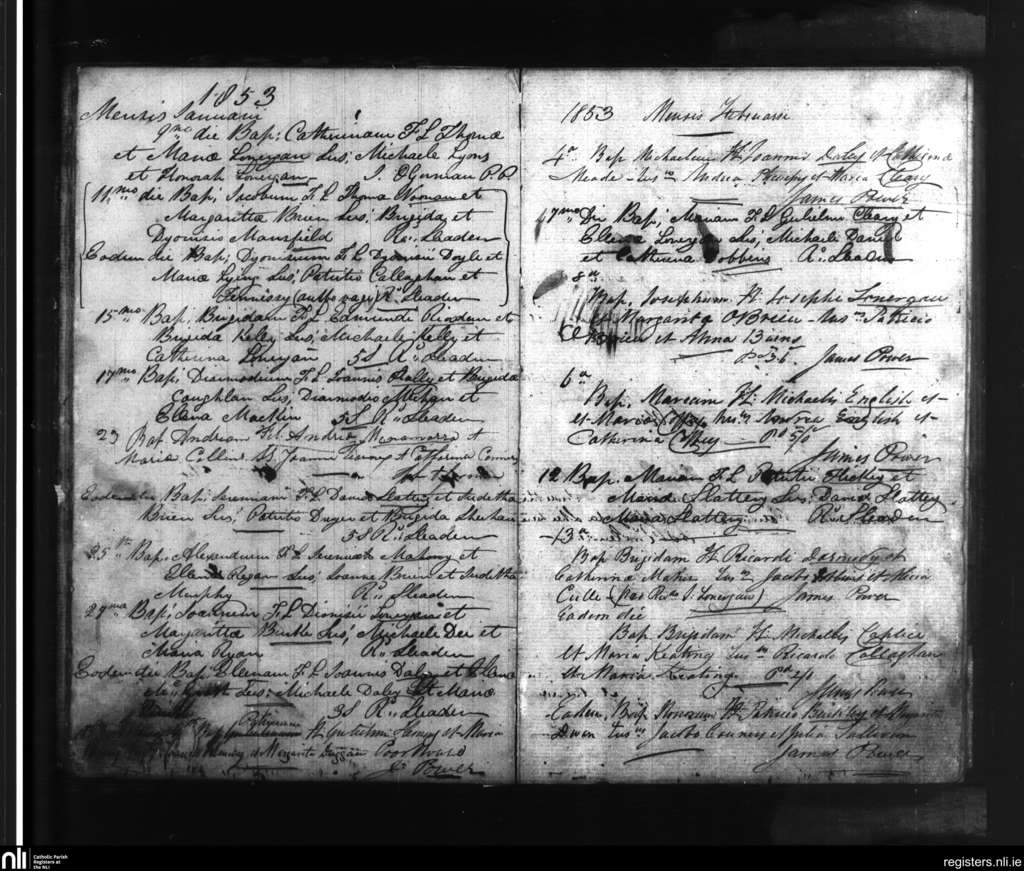 1853
Mensis Januarii
9no die Bap; Catherinam F L Thomæ
et Mariæ Lonergan Sus; Michaele Lyons
et Honorah Lonergan J. OGorman P.P.
11mo die Bap; Jacobum F L Thoma Noonan et
Margaritta Brien Sus; Brigida et
Dyonisio Mansfield Rd. Sleaden
Eodem die Bap; Dyonisium F L Dyonisii Doyle et
Mariæ Lying Sus; Patritio Callaghan et
Fennissy (ambo vagi) Rd. Sleaden
15mo Bap; Brigidam F L Edmundi Riordan et
Brigida Kelly Sus; Michaele Kelly et
Catherina Lonergan 5s Rd. Sleaden
17mo Bap; Diarmodium F L Joannis Lally et Brigida
Coughlan Sus; Diarmodio Meehan et
Elena Mackin 5s Rd. Sleaden
23 Bap Andream Fil. Andreæ et
Maria Collins SS Joanne Kearney et Catherina Connors
Eodem die Bap; Joannam F L David Slattery et Judetha
Brien Sus; Patritio Dwyer et Brigida Sheehan
5s Rd. Sleaden
25to Bap; Alexandrum F L Jeremiæ Mahony et
Elena Regan Sus; Joanne Brien et Judetha
Murphy Rd. Sleaden
27ma Bap; Joannem F L Dionisii Lonergan et
Margaritta Burke Sus; Michaele Dei et
Maria Ryan Rd. Sleaden
Eodem die Bap Ellenam F L Joannis Daly et Elena
Sus; Michaele Daly et Mariæ
3s Rd. Sleaden
Patricium
Fl Gulielmi Kempy et Maria
et Margarita Duggan Poor Ward
Js Power
1853 Mensis Februarii
4a Bap Michaelem Fl Joannis Daley et Catherina
Meade Susns Andrea et Maria Cleary
James Power
7mo Die Bap; Mariam F L Gulielmi Cleary et
Ellena Lonergan Sus; Michaele Daniel
et Catherina Dobbins Rd. Sleaden
8a
Bap. Josephum Fl Josephi Lonergan
et Margarita OBrien Susns Patricio
OBrien et Anna Burns
Pd 3s James Power
6a
Bap. Marcum Fl. Michaelis English et
et Maria Coffey Susns Andrea English et
Catherina Coffey Pd 5/s
James Power
12 Bap. Mariam F L Patritii Hickey et
Mariæ Slattery Sus; David Slattery
Maria Slattery Rd. Sleaden
13a
Bap Brigidam Fl Ricardi Darmody et
Catherina Maher Susns Jacobo et Maria
(Per Revd J. Lonergan) James Power
Eadem die
Bap. Brigidam Fl. Michaelis Caplice
et Maria Keating Susns Ricardo Callaghan
et Maria Keating Pd 2/s
James Power
Eadem, Bap Honoram Fl Patricio Buckley et
Dwan Susns Jacobo Connors et Julia Sullivan
James Power
nli
Catholic Parish
Registers at
the NLI
registers.nli.ie